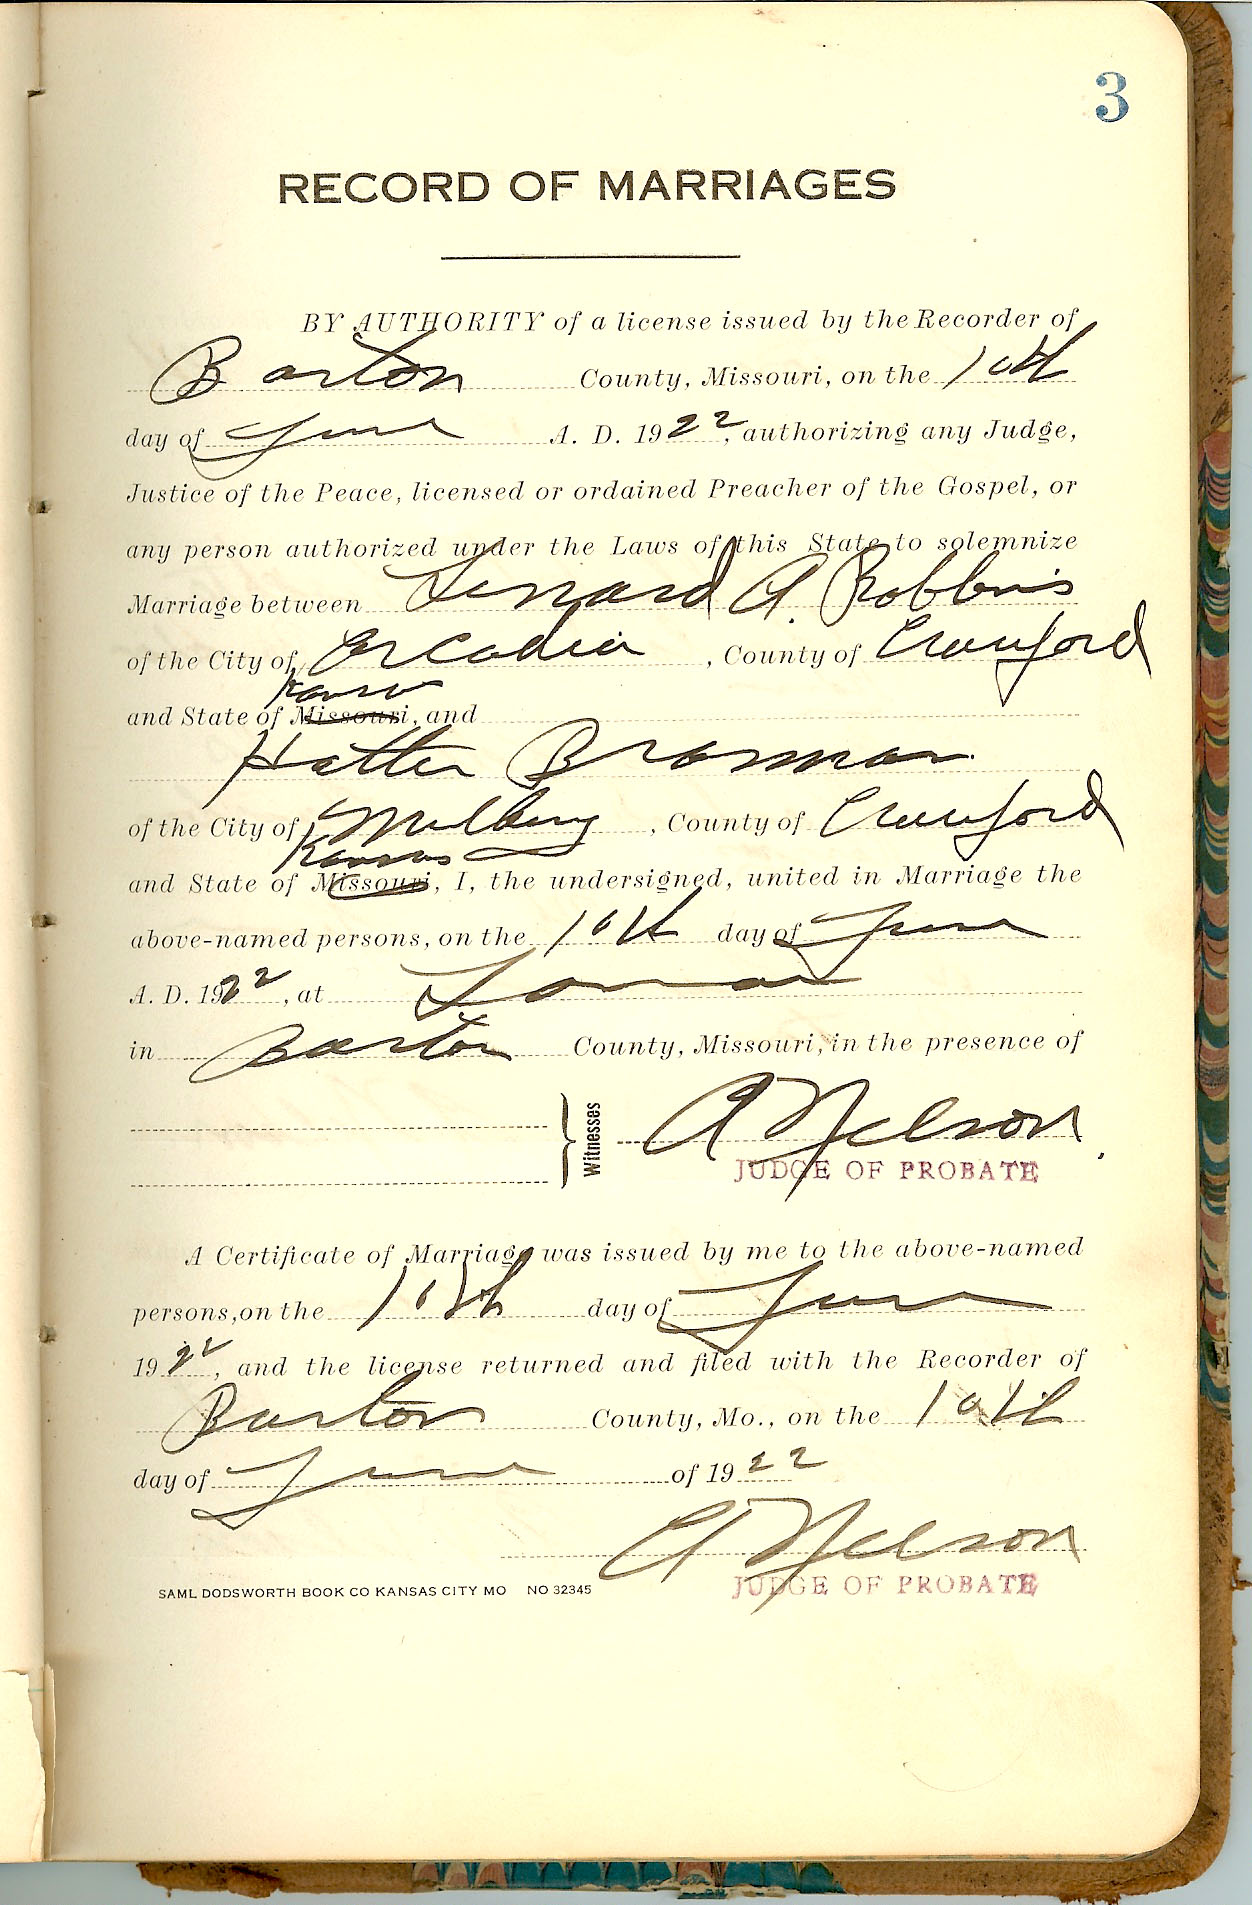 3
RECORD OF MARRIAGES
BY AUTHORITY of a license issued by the Recorder of
Barton County, Missouri, on the 10th
day of June A. D. 1922, authorizing any Judge,
Justice of the Peace, licensed or ordained Preacher of the Gospel, or
any person authorized under the Laws of this State to solemnize
Marriage between Lenard A. Robbins
of the City of Arcadia, County of Crawford
Kansas
and State of Missouri, and
Hattie Brosman
of the City of Mulberry, County of Crawford
Kansas
and State of Missouri, I, the undersigned, united in Marriage the
above-named persons, on the 10th day of June
A. D. 1922, at Lamar
in Barton County, Missouri, in the presence of
Witnesses A Nelson
JUDGE OF PROBATE
A Certificate of Marriage was issued by me to the above-named
persons, on the 10th day of June
1922, and the license returned and filed with the Recorder of
Barton County, Mo., on the 10th
day of June of 1922
A Nelson
SAML DODSWORTH BOOK CO KANSAS CITY MO NO 32345 JUDGE OF PROBATE